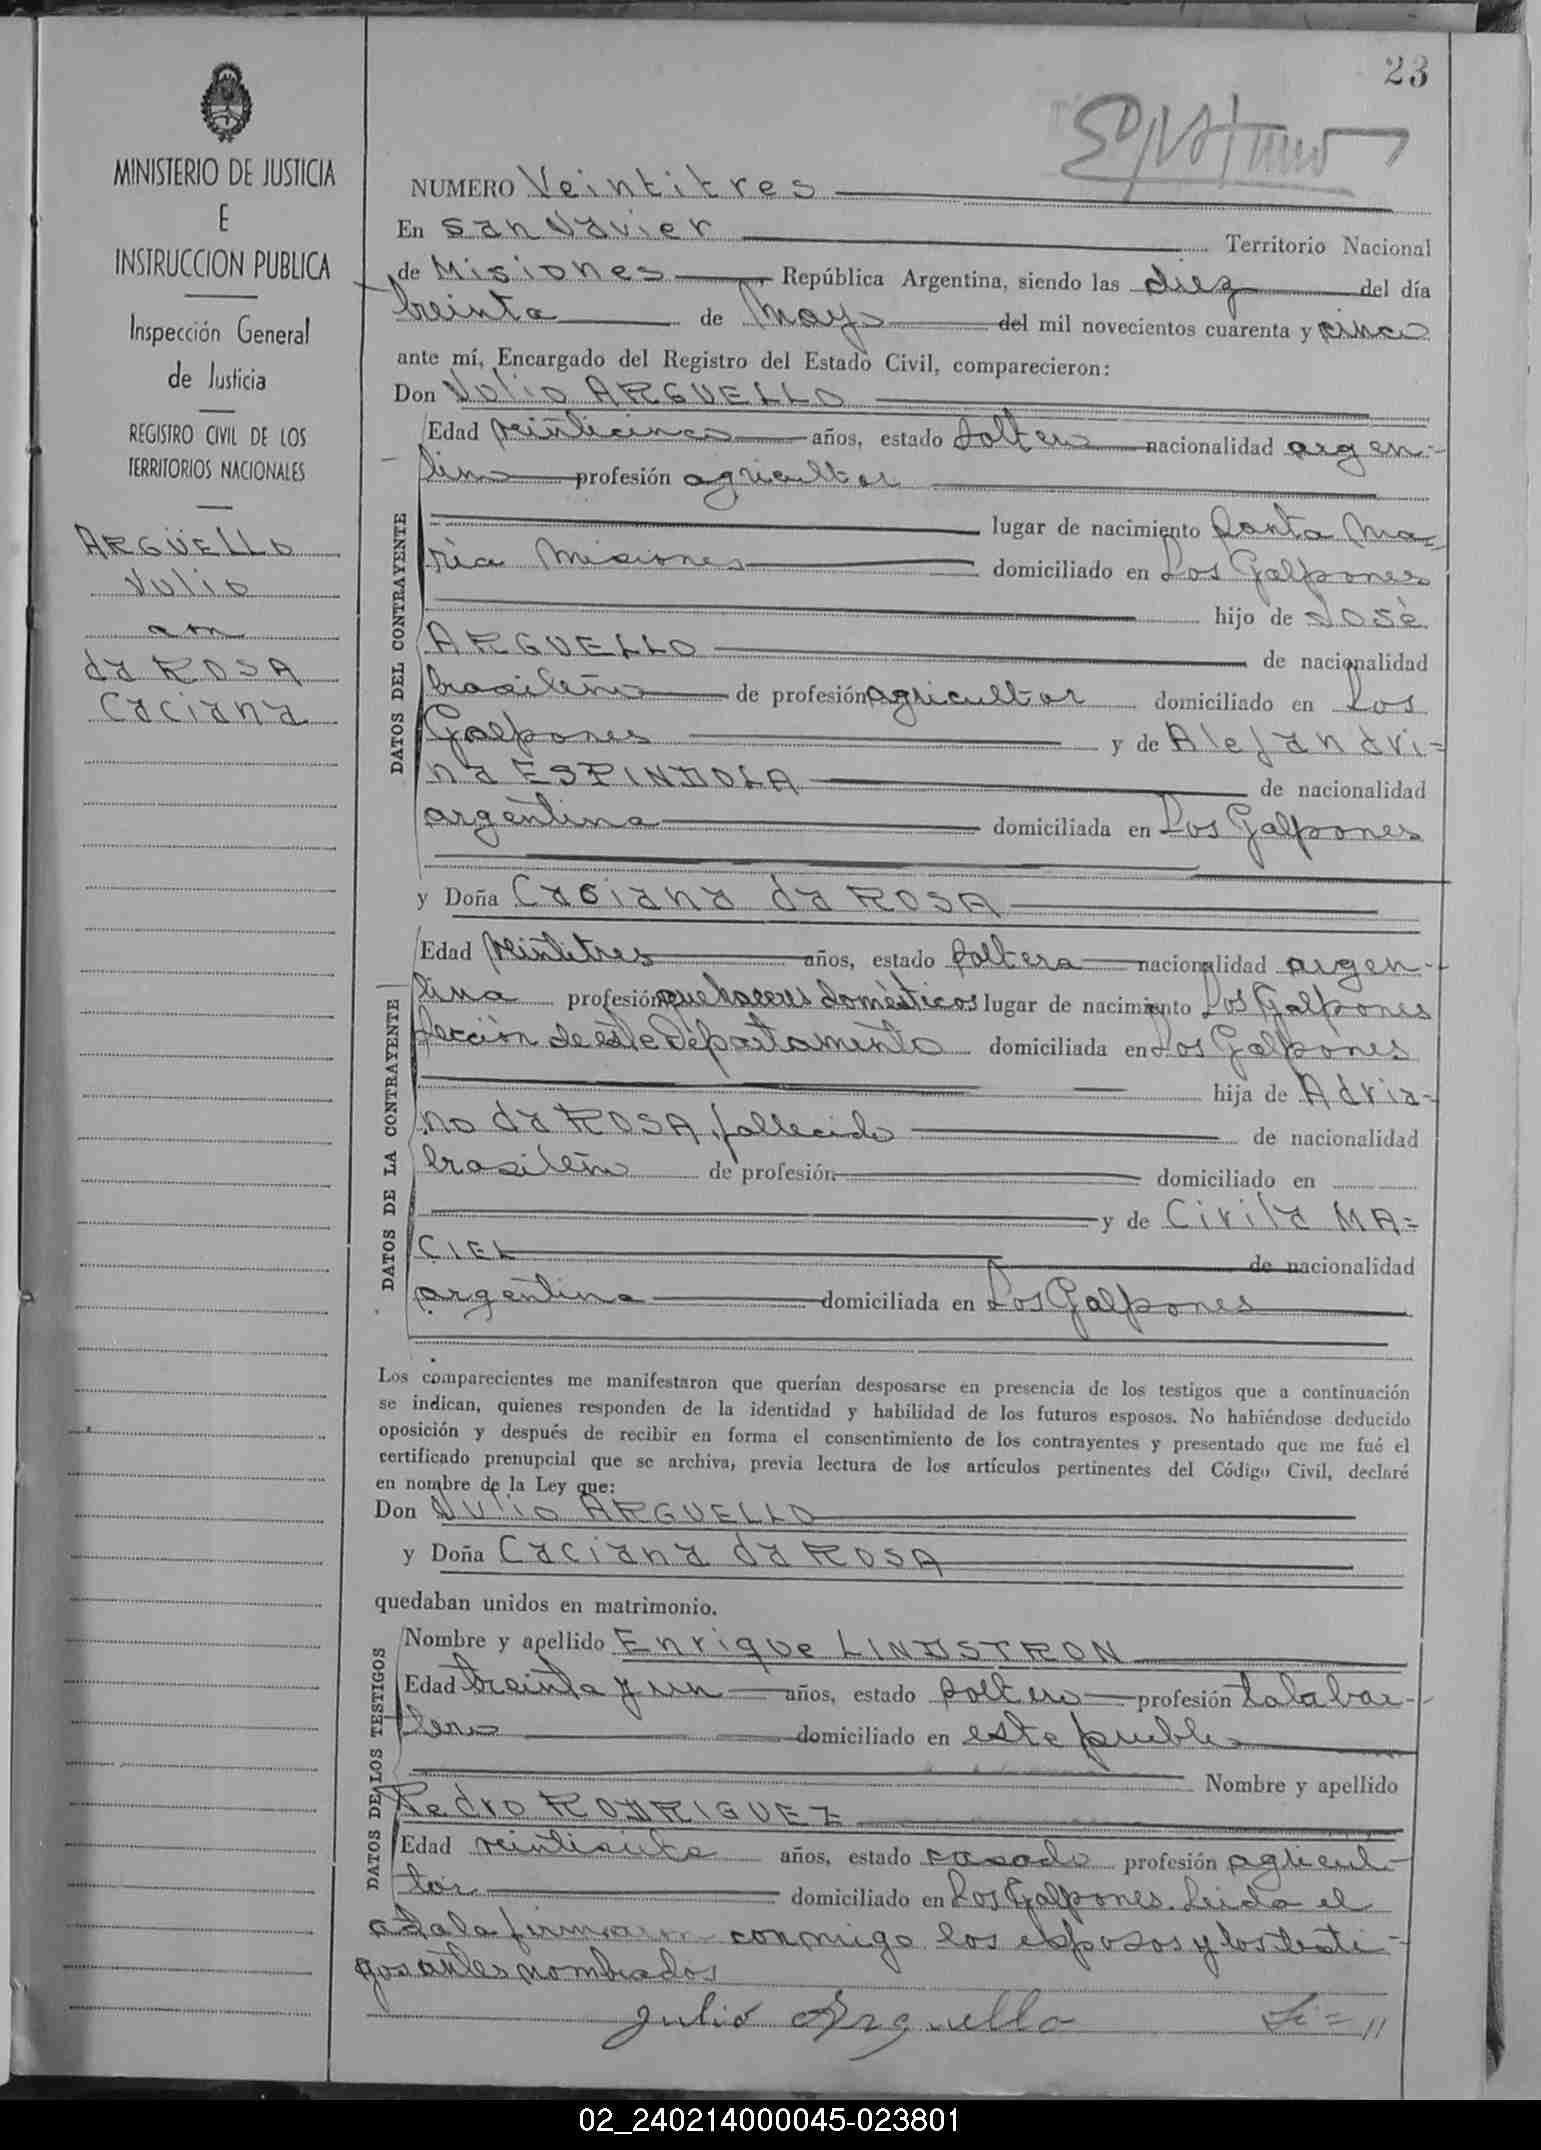 23
MINISTERIO DE JUSTICIA
E
INSTRUCCION PUBLICA
Inspección General
de Justicia
REGISTRO CIVIL DE LOS
TERRITORIOS NACIONALES
ARGÜELLO
Julio
con
da ROSA
Caciana
NUMERO Veintitres
En San Javier Territorio Nacional
de Misiones, República Argentina, siendo las diez del día
treinta de Mayo del mil novecientos cuarenta y cinco
ante mí, Encargado del Registro del Estado Civil, comparecieron:
Don Julio ARGUELLO
DATOS DEL CONTRAYENTE
Edad veinticinco años, estado soltero nacionalidad argen-
tino profesión agricultor
lugar de nacimiento Santa Ma=
ría Misiones domiciliado en Los Galpones
hijo de José
ARGUELLO de nacionalidad
brasileño de profesión agricultor domiciliado en Los
Galpones y de Alejandri=
na ESPINDOLA de nacionalidad
argentina domiciliada en Los Galpones
y Doña Caciana da ROSA
DATOS DE LA CONTRAYENTE
Edad veintitres años, estado soltera nacionalidad argen-
tina profesión quehaceres domésticos lugar de nacimiento Los Galpones
sección de este Departamento domiciliada en Los Galpones
hija de Adria-
no da ROSA, fallecido de nacionalidad
brasileño de profesión domiciliado en
y de Cirila MA=
CIEL de nacionalidad
argentina domiciliada en Los Galpones
Los comparecientes me manifestaron que querían desposarse en presencia de los testigos que a continuación
se indican, quienes responden de la identidad y habilidad de los futuros esposos. No habiéndose deducido
oposición y después de recibir en forma el consentimiento de los contrayentes y presentado que me fué el
certificado prenupcial que se archiva, previa lectura de los artículos pertinentes del Código Civil, declaré
en nombre de la Ley que:
Don Julio ARGUELLO
y Doña Caciana da ROSA
quedaban unidos en matrimonio.
DATOS DE LOS TESTIGOS
Nombre y apellido Enrique LINDSTRON
Edad treinta y un años, estado soltero profesión talabar-
tero domiciliado en este pueblo
Nombre y apellido
Pedro RODRIGUEZ
Edad veintisiete años, estado casado profesión agricul-
tor domiciliado en Los Galpones. Leida el
acta la firmaron conmigo los esposos y los testi-
gos antes nombrados
Julio Arguello
02_240214000045-023801